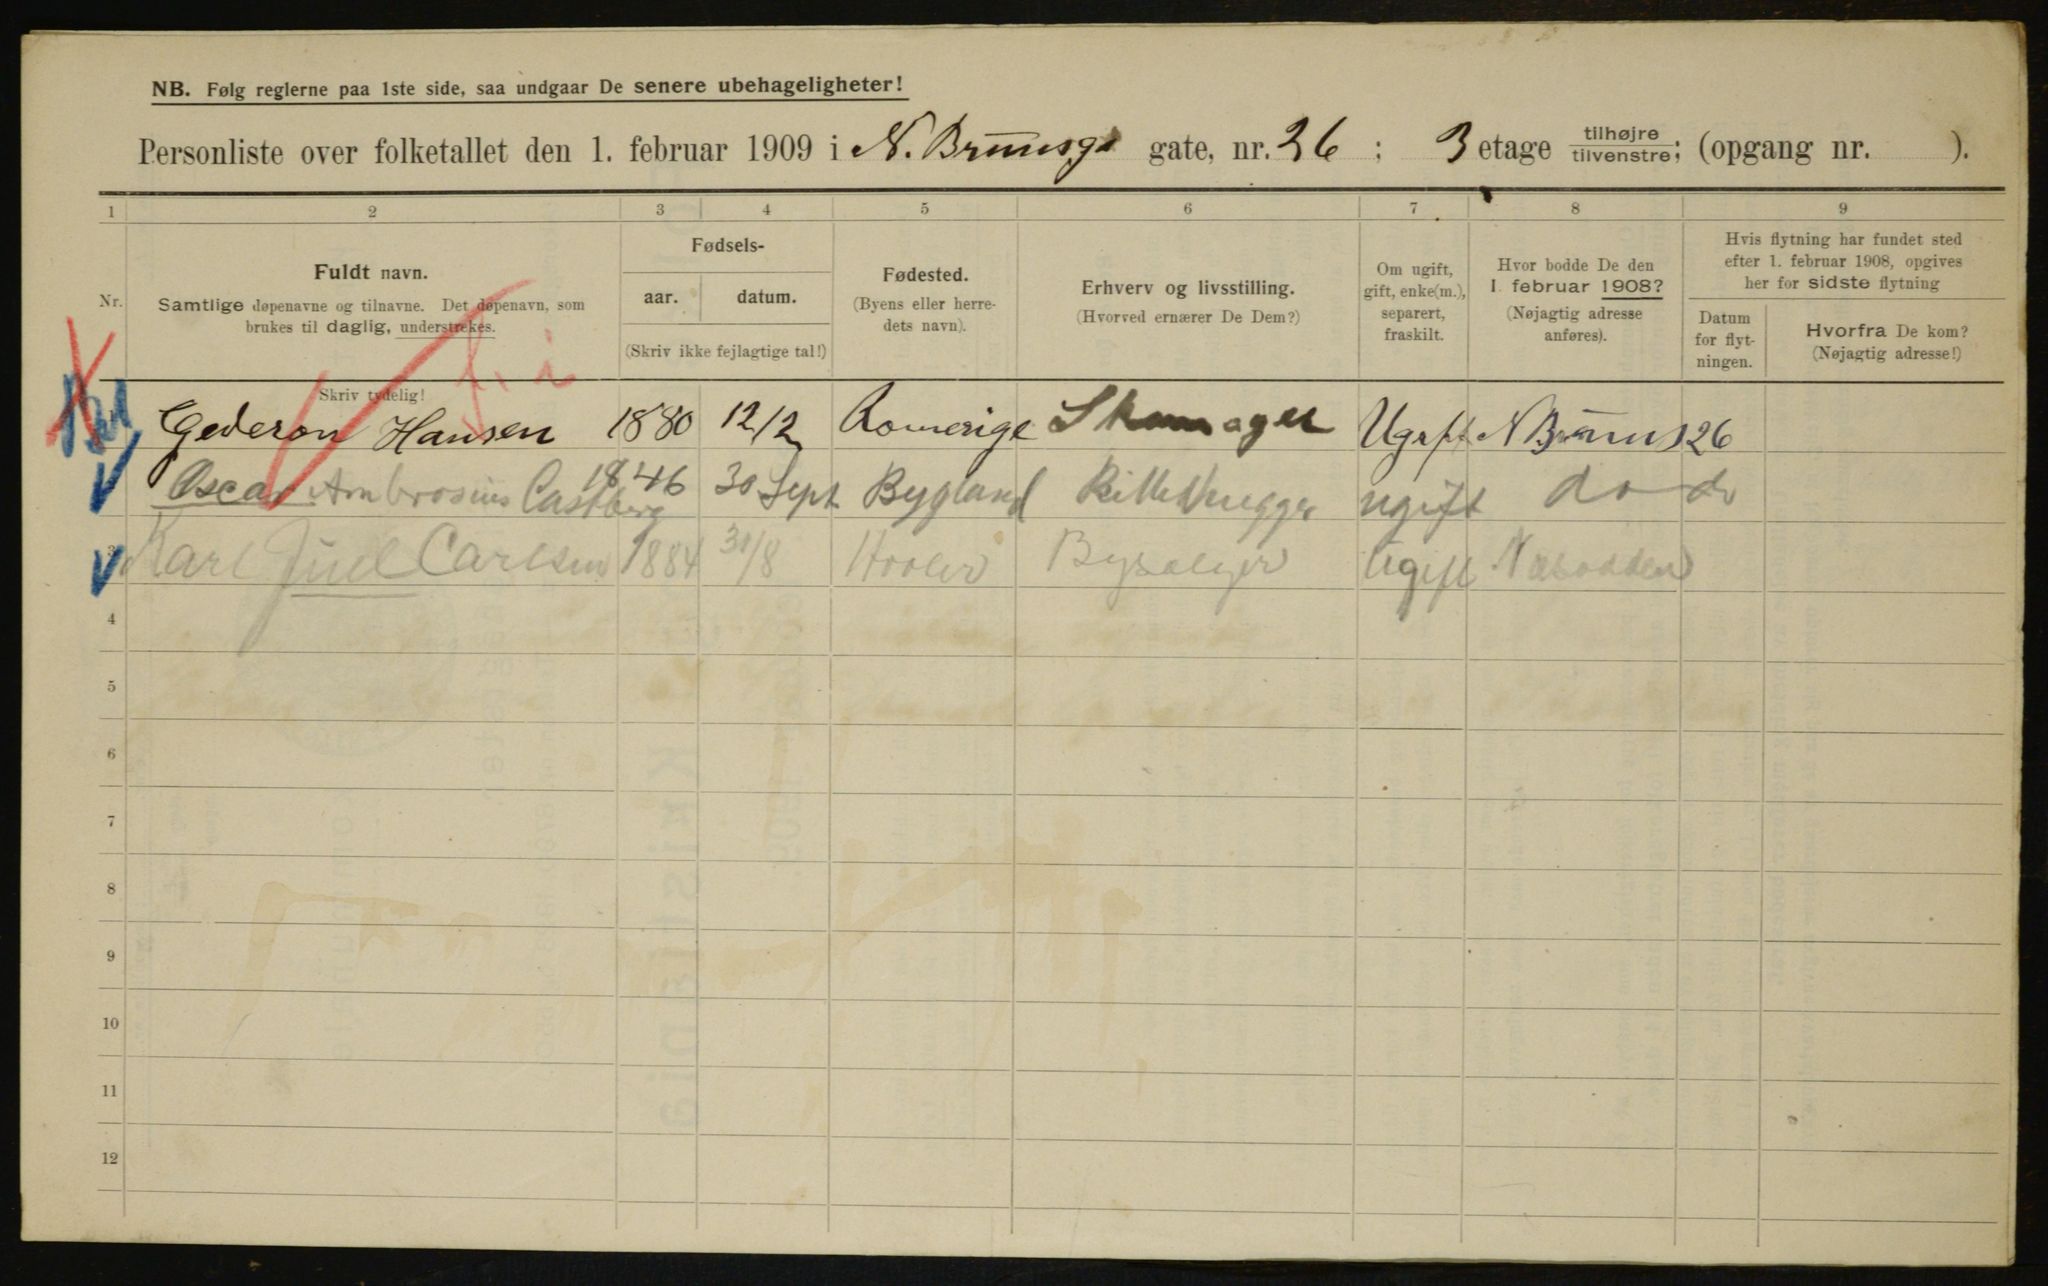 NB. Følg reglerne paa 1ste side, saa undgaar De senere ubehageligheter!
Personliste over folketallet den 1. februar 1909 i N. Brunsg. gate, nr. 26 ; 3 etage tilhøjre tilvenstre; (opgang nr. ).
1 2 3 4 5 6 7 8 9
Nr.
Fuldt navn.
Samtlige døpenavne og tilnavne. Det døpenavn, som
brukes til daglig, understrekes.
Skriv tydelig!
Fødsels-
aar. datum.
(Skriv ikke fejlagtige tal!)
Fødested.
(Byens eller herre-
dets navn).
Erhverv og livsstilling.
(Hvorved ernærer De Dem?)
Om ugift,
gift, enke(m.),
separert,
fraskilt.
Hvor bodde De den
1. februar 1908?
(Nøjagtig adresse
anføres).
Hvis flytning har fundet sted
efter 1. februar 1908, opgives
her for sidste flytning
Datum
for flyt-
ningen.
Hvorfra De kom?
(Nøjagtig adresse!)
Gederon Hansen 1880 12/2 Romerige Skomager Ugift N Bruns 26
Oscar Ambrosius Castberg 1846 30 Sept Bygland Billedhugger ugift do do
3 Karl Juel Carlsen 1884 31/8 Byselger Ugift Nesodden
4
5
6
7
8
9
10
11
12